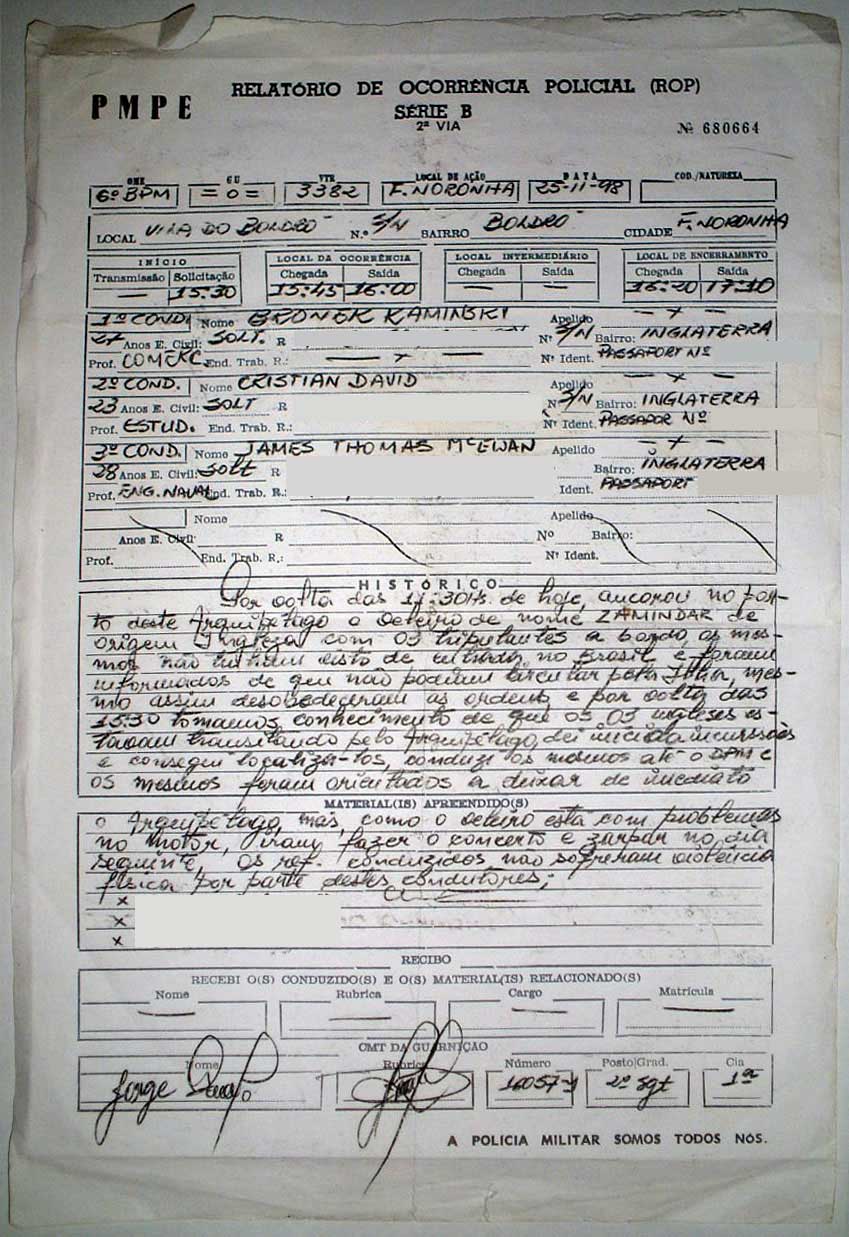 PMPE
RELATÓRIO DE OCORRÊNCIA POLICIAL (ROP)
SÉRIE B
2ª VIA
Nº 680664
OME GU VTR LOCAL DE AÇÃO DATA COD./NATUREZA
6º BPM = 0 = 3382 F. NORONHA 25-11-98
LOCAL VILA DO BOLDRÓ N.º S/N BAIRRO BOLDRÓ CIDADE F. NORONHA
INÍCIO LOCAL DA OCORRÊNCIA LOCAL INTERMEDIÁRIO LOCAL DE ENCERRAMENTO
Transmissão Solicitação Chegada Saída Chegada Saída Chegada Saída
— 15:30 15:45 16:00 — — 16:20 17:10
1º COND. Nome BRONEK KAMINSKI Apelido — x —
27 Anos E. Civil: SOLT. R Nº S/N Bairro: INGLATERRA
Prof. COMERC. End. Trab. R.: — x — Nº Ident. PASSAPORT Nº
2º COND. Nome CRISTIAN DAVID Apelido — x —
23 Anos E. Civil: SOLT R Nº S/N Bairro: INGLATERRA
Prof. ESTUD. End. Trab. R.: Nº Ident. PASSAPOR Nº
3º COND. Nome JAMES THOMAS McEWAN Apelido — x —
28 Anos E. Civil: SOLT R Bairro: INGLATERRA
Prof. ENG. NAVAL End. Trab. R.: Ident. PASSAPORT
Nome Apelido
Anos E. Civil: R Nº Bairro:
Prof. End. Trab. R.: Nº Ident.
HISTÓRICO
Por volta das 11:30hs. de hoje, ancorou no por-
to deste Arquipélago o veleiro de nome ZAMINDAR de
origem Inglesa com 03 tripulantes a bordo, os mes-
mos não tinham visto de entrada no Brasil e foram
informados de que não podiam circular pela Ilha, mes-
mo assim desobedeceram as ordens e por volta das
15:30 tomamos conhecimento de que os 03 ingleses es-
tavam transitando pelo Arquipélago, dei início a incursões
e consegui localizar-los, conduzi os mesmos até o DPM e
os mesmos foram orientados a deixar de imediato
MATERIAL(IS) APREENDIDO(S)
o Arquipélago, mas, como o veleiro esta com problemas
no motor, iram fazer o concerto e zarpar no dia
seguinte, os ref. conduzidos não sofreram violência
física por parte destes condutores;
x
x
x
RECIBO
RECEBI O(S) CONDUZIDO(S) E O(S) MATERIAL(IS) RELACIONADO(S)
Nome Rubrica Cargo Matrícula
— — — —
CMT DA GUARNIÇÃO
Nome Rubrica Número Posto/Grad. Cia
Jorge 16057-1 2º Sgt 1ª
A POLICIA MILITAR SOMOS TODOS NÓS.